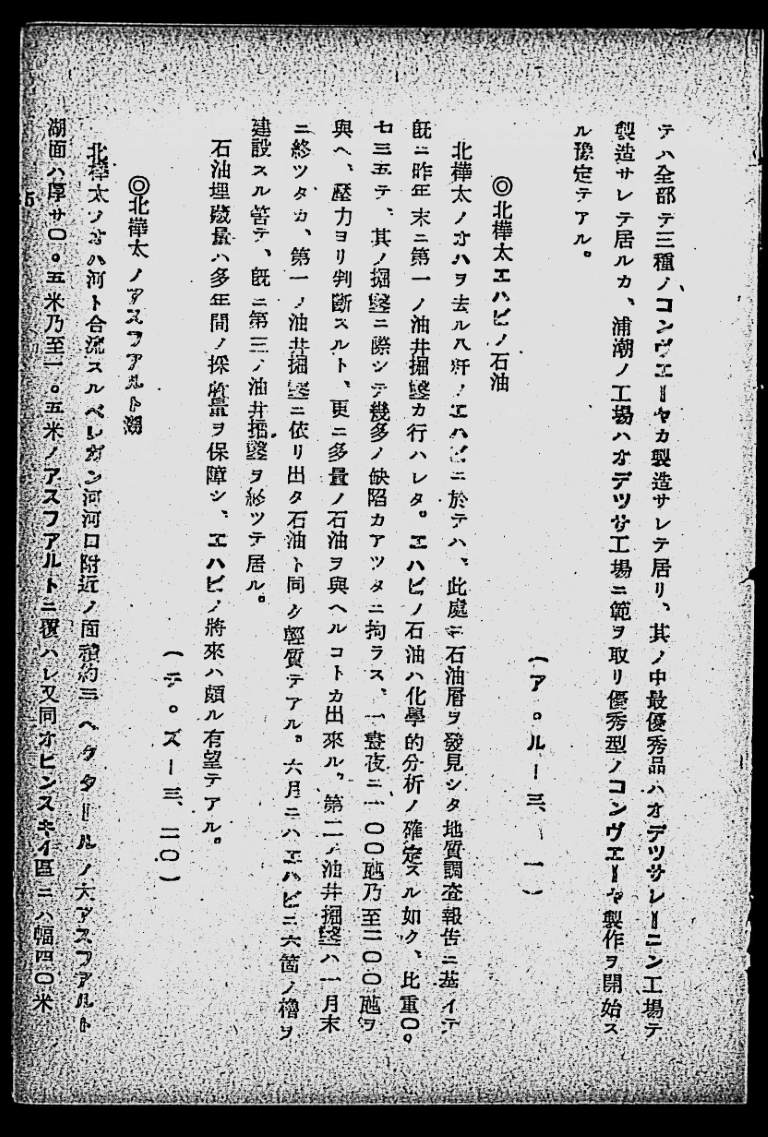 テハ全部テ三種ノコンヴエーヤカ製造サレテ居リ、其ノ中最優秀品ハオデツサレーニン工場テ
製造サレテ居ルカ、浦潮ノ工場ハオデツサ工場ニ範ヲ取リ優秀型ノコンヴエーヤ製作ヲ開始ス
ル豫定テアル。
(ア。ルー三、一)
◎北樺太エハビノ石油
北樺太ノオハヲ去ル八粁ノエハビニ於テハ、此處ニ石油層ヲ發見シタ地質調査報告ニ基イテ
既ニ昨年末ニ第一ノ油井掘鑿カ行ハレタ。エハビノ石油ハ化學的分析ノ確定スル如ク、比重〇。
七三五テ、其ノ掘鑿ニ際シテ幾多ノ缺陷カアツタニ拘ラス、一晝夜ニ一〇〇瓲乃至二〇〇瓲ヲ
與ヘ、壓力ヨリ判斷スルト、更ニ多量ノ石油ヲ與ヘルコトカ出來ル。第二ノ油井掘鑿ハ一月末
ニ終ツタカ、第一ノ油井掘鑿ニ依リ出タ石油ト同ク輕質テアル。六月ニハエハビニ六箇ノ櫓ヲ
建設スル筈テ、既ニ第三ノ油井掘鑿ヲ終ツテ居ル。
石油埋藏量ハ多年間ノ採取量ヲ保障シ、エハビノ將來ハ頗ル有望テアル。
(テ。ズー三、二〇)
◎北樺太ノアスフアルト湖
北樺太ノオハ河ト合流スルベレガン河河口附近ノ面積約三ヘクタールノ大アスフアルト
湖面ハ厚サ〇。五米乃至一。五米ノアスフアルトニ覆ハレ又同オビンスキイ區ニハ幅四〇米